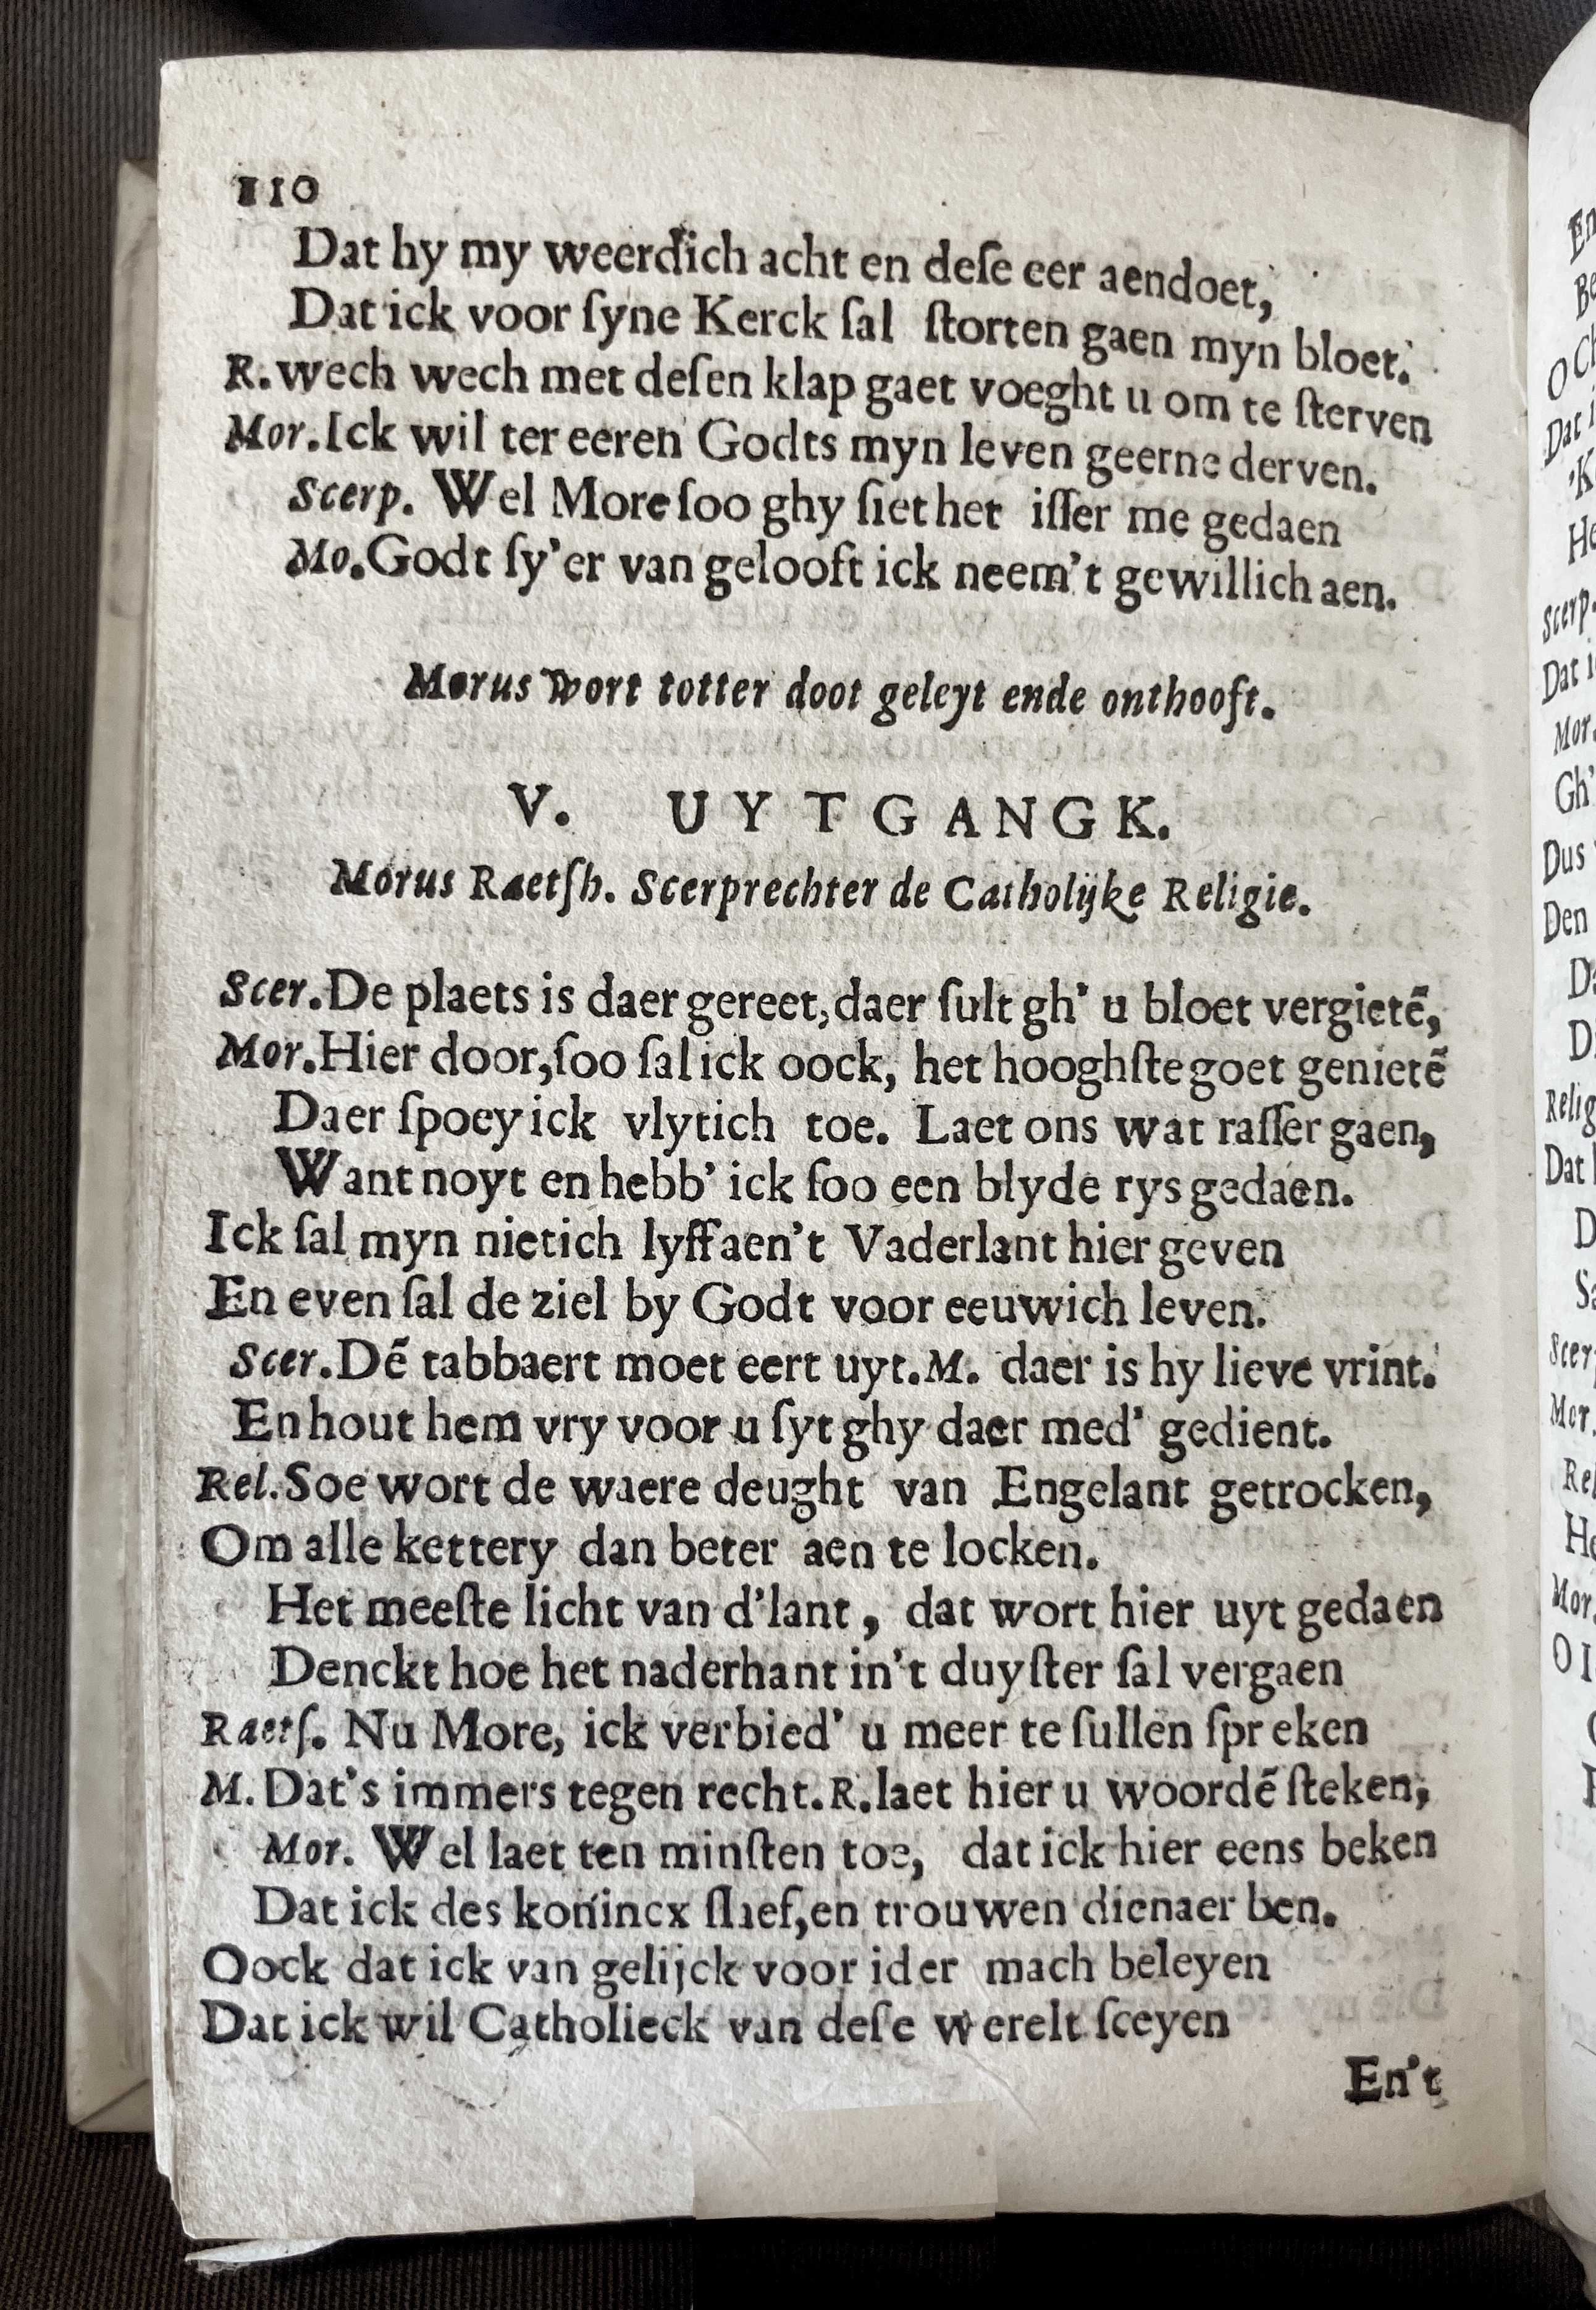 110
Dat hy my weerdich acht en deſe eer aendoet,
Dat ick voor ſyne Kerck ſal ſtorten gaen myn bloet.
R. wech wech met deſen klap gaet voeght u om te ſterven
Mor. Ick wil ter eeren Godts myn leven geerne derven.
Scerp. Wel More ſoo ghy ſiet het iſſer me gedaen
Mo. Godt ſy'er van gelooft ick neem't gewillich aen.
Morus wort totter doot geleyt ende onthooft.
V. UYTGANGK.
Morus Raetſh. Scerprechter de Catholijke Religie.
Scer. De plaets is daer gereet, daer ſult gh' u bloet vergietẽ,
Mor. Hier door, ſoo ſal ick oock, het hooghſte goet genietẽ
Daer ſpoey ick vlytich toe. Laet ons wat raſſer gaen,
Want noyt en hebb' ick ſoo een blyde rys gedaen.
Ick ſal myn nietich lyff aen't Vaderlant hier geven
En even ſal de ziel by Godt voor eeuwich leven.
Scer. Dẽ tabbaert moet eert uyt. M. daer is hy lieve vrint.
En hout hem vry voor u ſyt ghy daer med' gedient.
Rel. Soe wort de waere deught van Engelant getrocken,
Om alle kettery dan beter aen te locken.
Het meeſte licht van d'lant, dat wort hier uyt gedaen
Denckt hoe het naderhant in't duyſter ſal vergaen
Raetſ. Nu More, ick verbied' u meer te ſullen ſpreken
M. Dat's immers tegen recht. R. laet hier u woordẽ ſteken,
Mor. Wel laet ten minſten toe, dat ick hier eens beken
Dat ick des konincx ſlaef, en trouwen dienaer ben.
Oock dat ick van gelijck voor ider mach beleyen
Dat ick wil Catholieck van deſe werelt ſceyen
En't